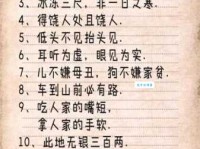 3、冰冻三尺，非一日之寒.
4、得饶人处且饶人.
5、低头不见抬头见.
6、耳听为虚，眼见为实.
7、儿不嫌母丑，狗不嫌家贫.
8、车到山前必有路.
9、吃人家的嘴短，
拿人家的手软.
10、此地无银三百两.